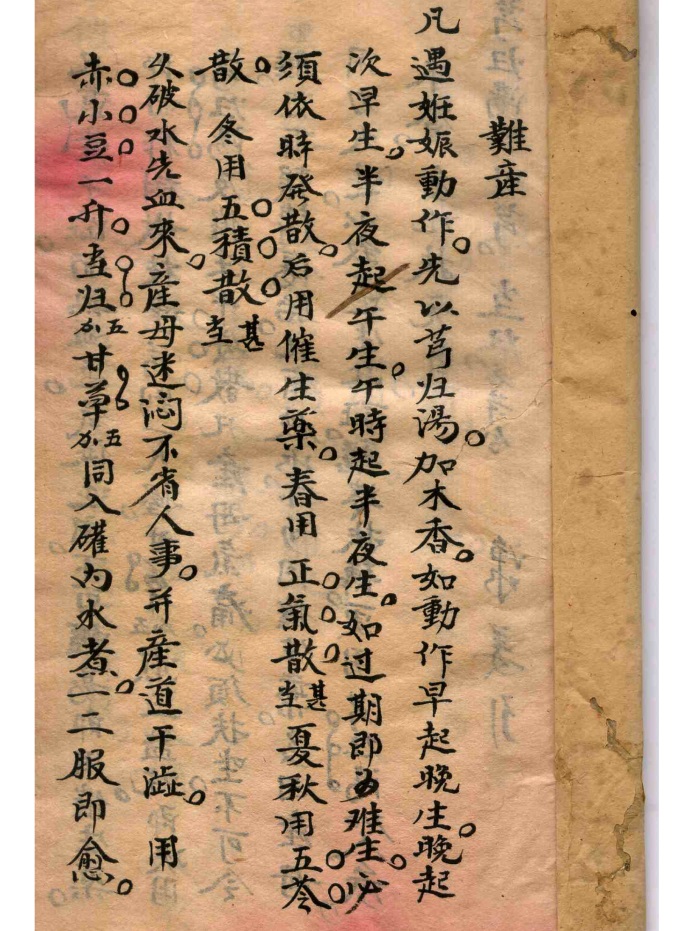 難產
凡遇妊娠動作。先以芎归湯。加木香。如動作早起晚生。晚起
次早生。半夜起午生。午時起半夜生。如过期即为难生。必
須依時發散。后用催生藥。春用正氣散甚 夏秋用五苓
散。冬用五積散。甚
久破水先血來。產母迷闷不省人事。并產道干澁。用
赤小豆一升。当归五 甘草五 同入礶内水煮。一二服即愈。